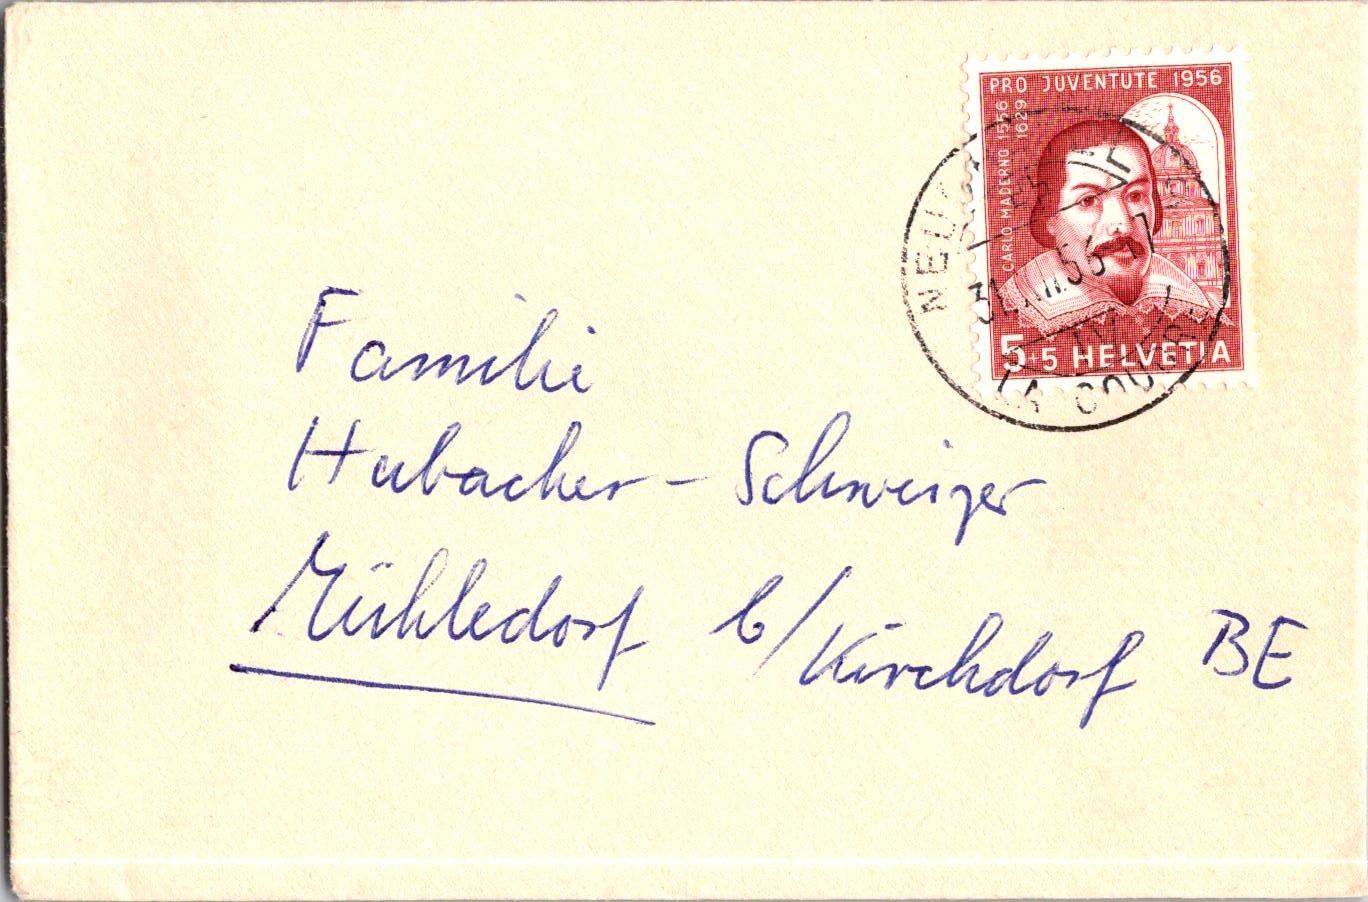 PRO JUVENTUTE 1956
CARLO MADERNO 1556
1629
5+5 HELVETIA
31.XII.56-17
LA COUDRE
Familie
Hubacher-Schweizer
Mühledorf b/Kirchdorf BE